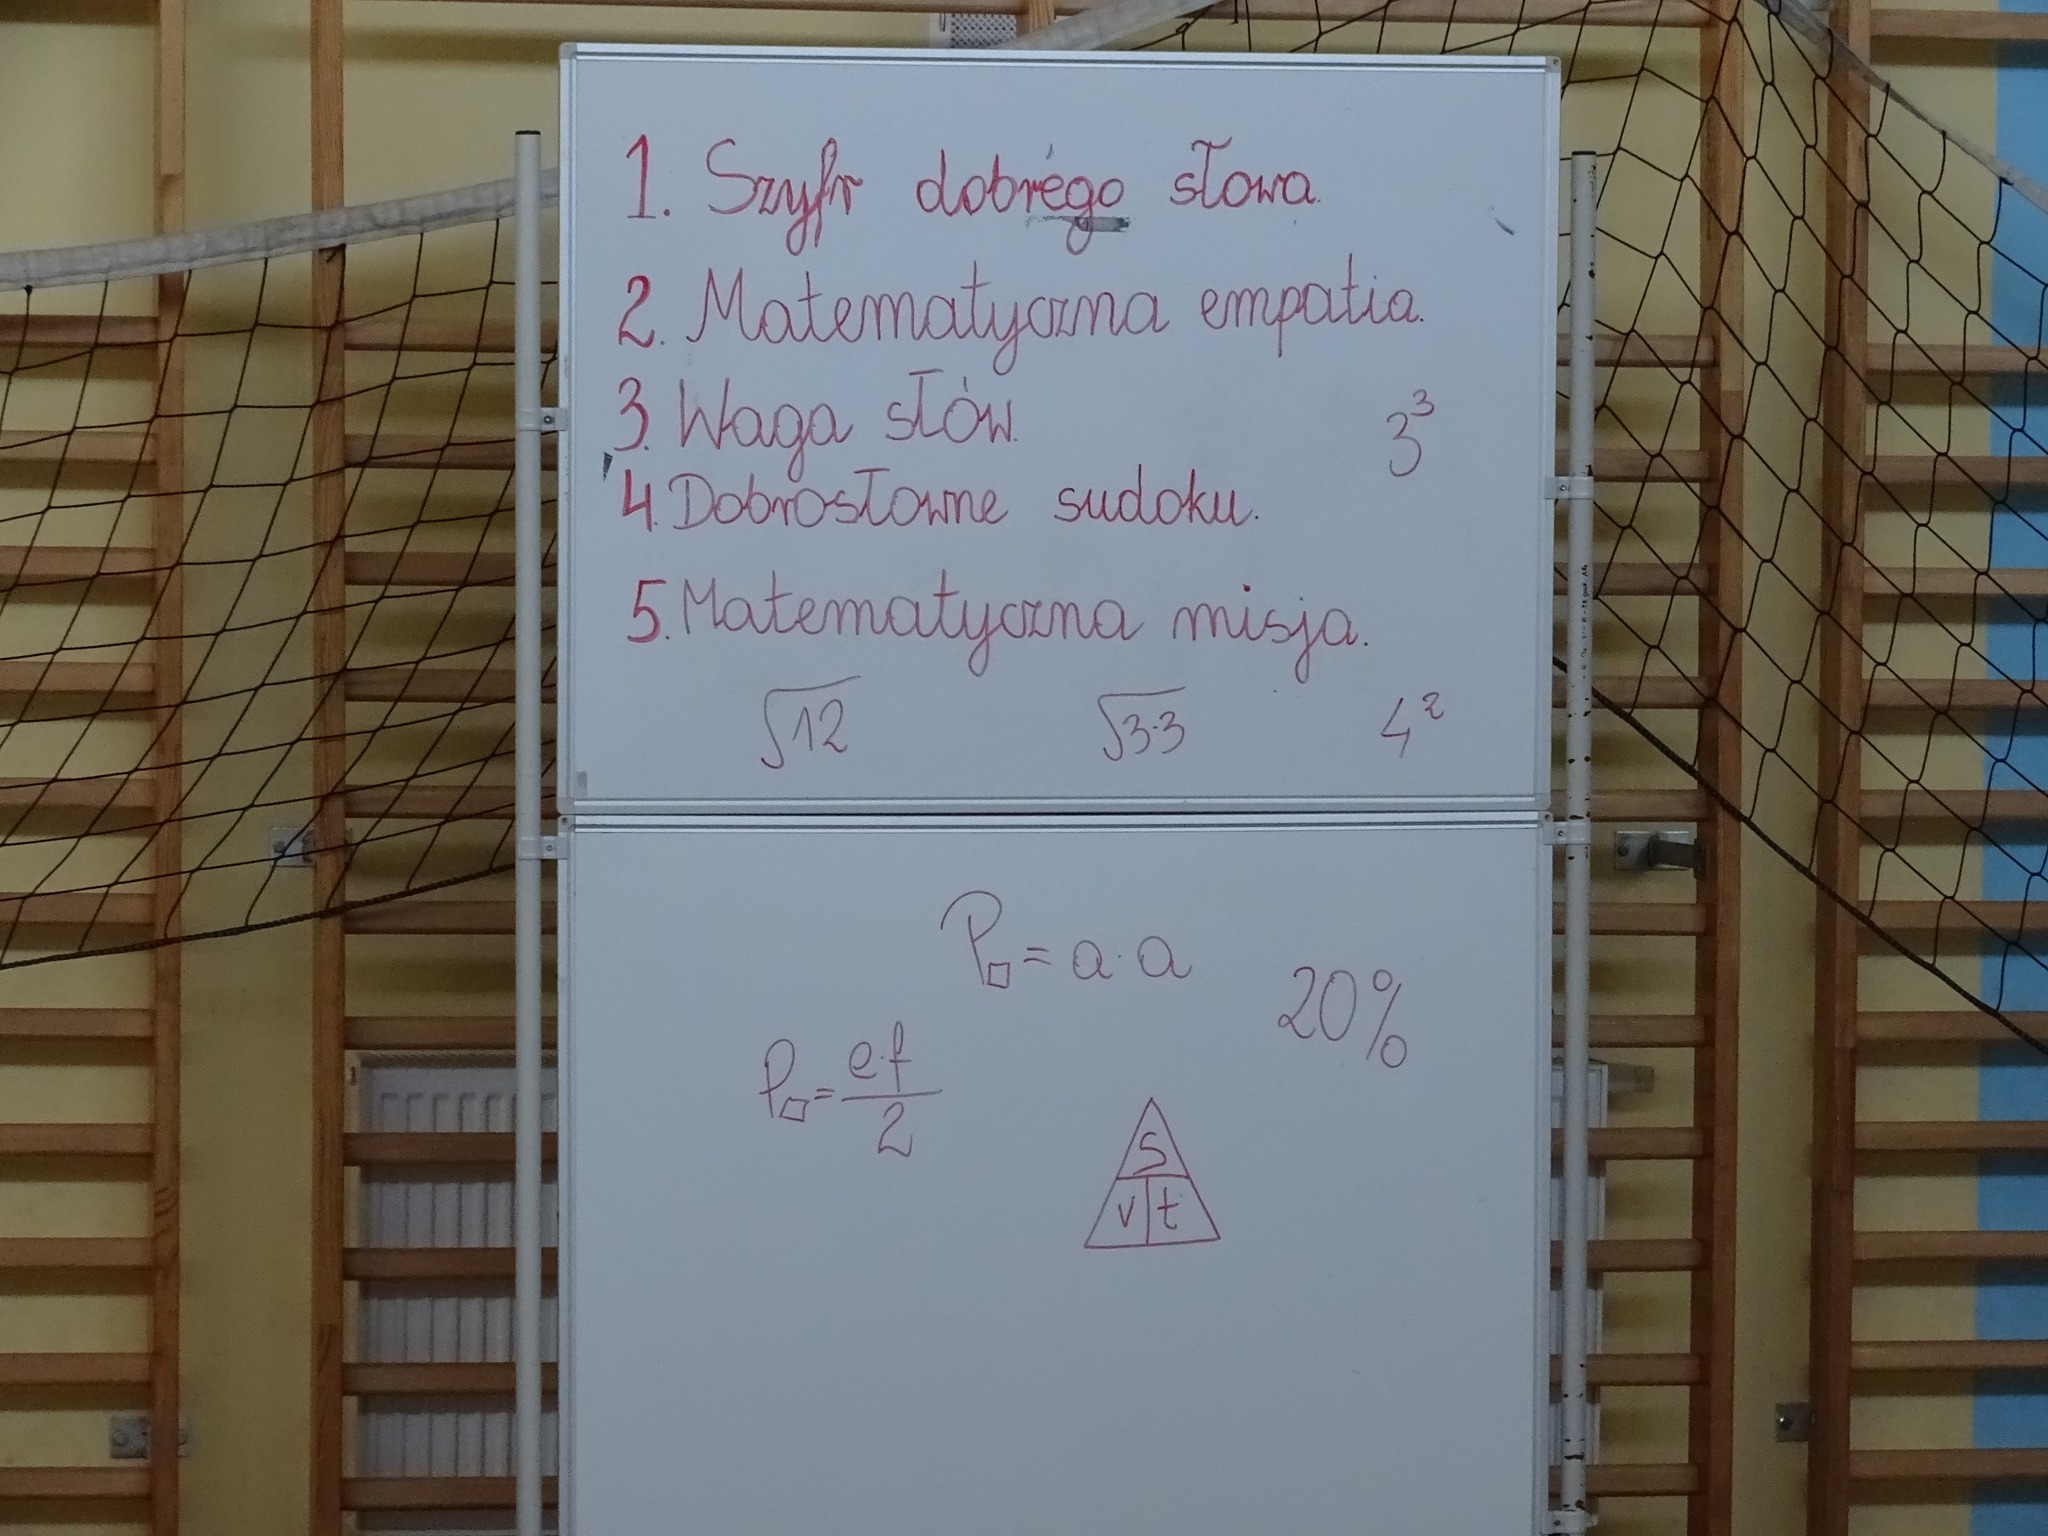 1. Szyfr dobrego słowa.
2. Matematyczna empatia.
3. Waga słów.
3³
4. Dobrosłowne sudoku.
5. Matematyczna misja.
√12 √3·3 4²
P□ = a·a
20%
P□ = e·f/2
S
v t